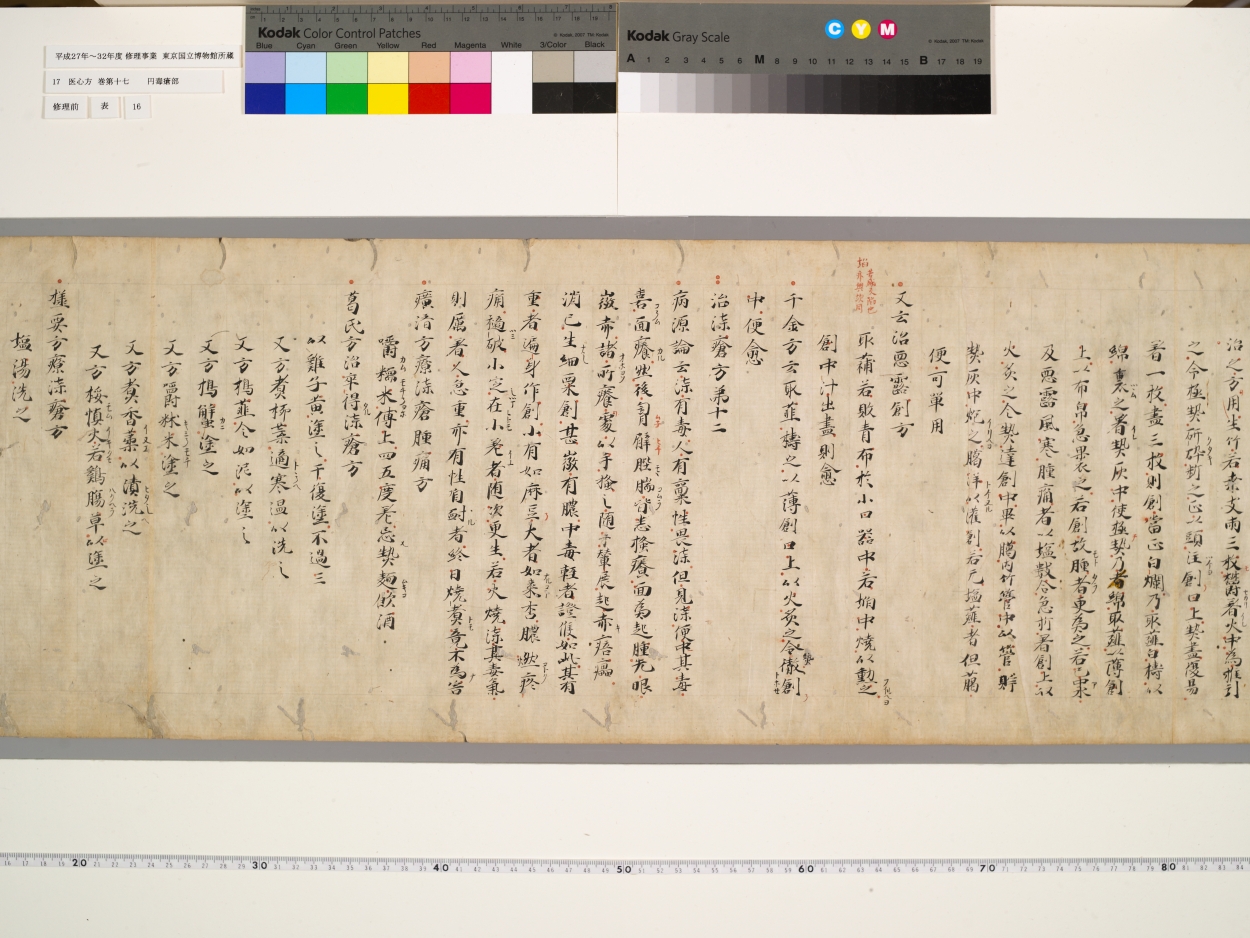 平成27年～32年度 修理事業 東京国立博物館所蔵
17 医心方 巻第十七
修理前 表 16
Kodak Color Control Patches
© Kodak, 2007 TM: Kodak
Blue Cyan Green Yellow Red Magenta White 3/Color Black
Kodak Gray Scale
C Y M
© Kodak, 2007 TM: Kodak
A 1 2 3 4 5 6 M 8 9 10 11 12 13 14 15 B 17 18 19
綿裹之著熱灰中使極熱刀者綿取薤以薄創
上以布帛急裹之若創故腫者更為之
及惡露風寒腫痛者以塩數合急折著創上以
火炙之令熱達創中畢以臈内竹管中以管貯
熱灰中炮之臈洋以灌創若无塩薤者但臈
便可単用
又云治惡露創方
取蒱若敗青布於小口器中若垍中燒以勳之
創中汁出盡則愈
千金方云取韮擣之以薄創口上以火炙之令傲創
中便愈
治漆瘡方第十二
病源論云漆有毒人有稟性畏漆但見漆便中其毒
喜面癢然後胷臂䏶腨皆悉搔癢面為起腫光眼
微赤諸所癢處以手搔之随手輦展起赤㾦㿔
消已生細粟創甚微有膿中毒輕者證候如此其有
重者遍身作創小有如麻豆大者如来杏膿燃疼
痛擿破小定在小差者随次更生若火燒漆其毒氣
則厲著人急重亦有性自耐者終日燒煮竟不為害
癀清方療漆瘡腫痛方
嚼糯米傅上四五度差忌熱麺飲酒
葛氏方治卒得漆瘡方
以雞子黄塗之干復塗不過三
又方煮柳葉適寒温以洗之
又方擣韮令如泥以塗之
又方擣蟹塗之
又方嚼秫米塗之
又方煮香薷以漬洗之
又方挼慎火若鷄膓草以塗之
様要方療漆瘡方
塩湯洗之
20 30 40 50 60 70 80